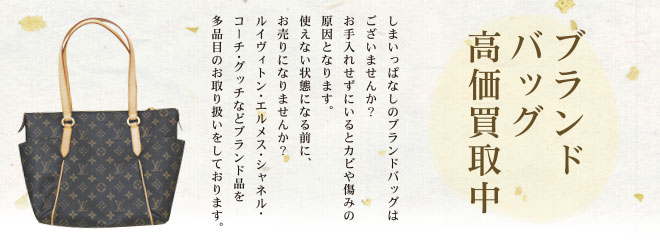 ブランド
バッグ
高価買取中
しまいっぱなしのブランドバッグは
ございませんか？
お手入れせずにいるとカビや傷みの
原因となります。
使えない状態になる前に、
お売りになりませんか？
ルイヴィトン・エルメス・シャネル・
コーチ・グッチなどブランド品を
多品目のお取り扱いをしております。